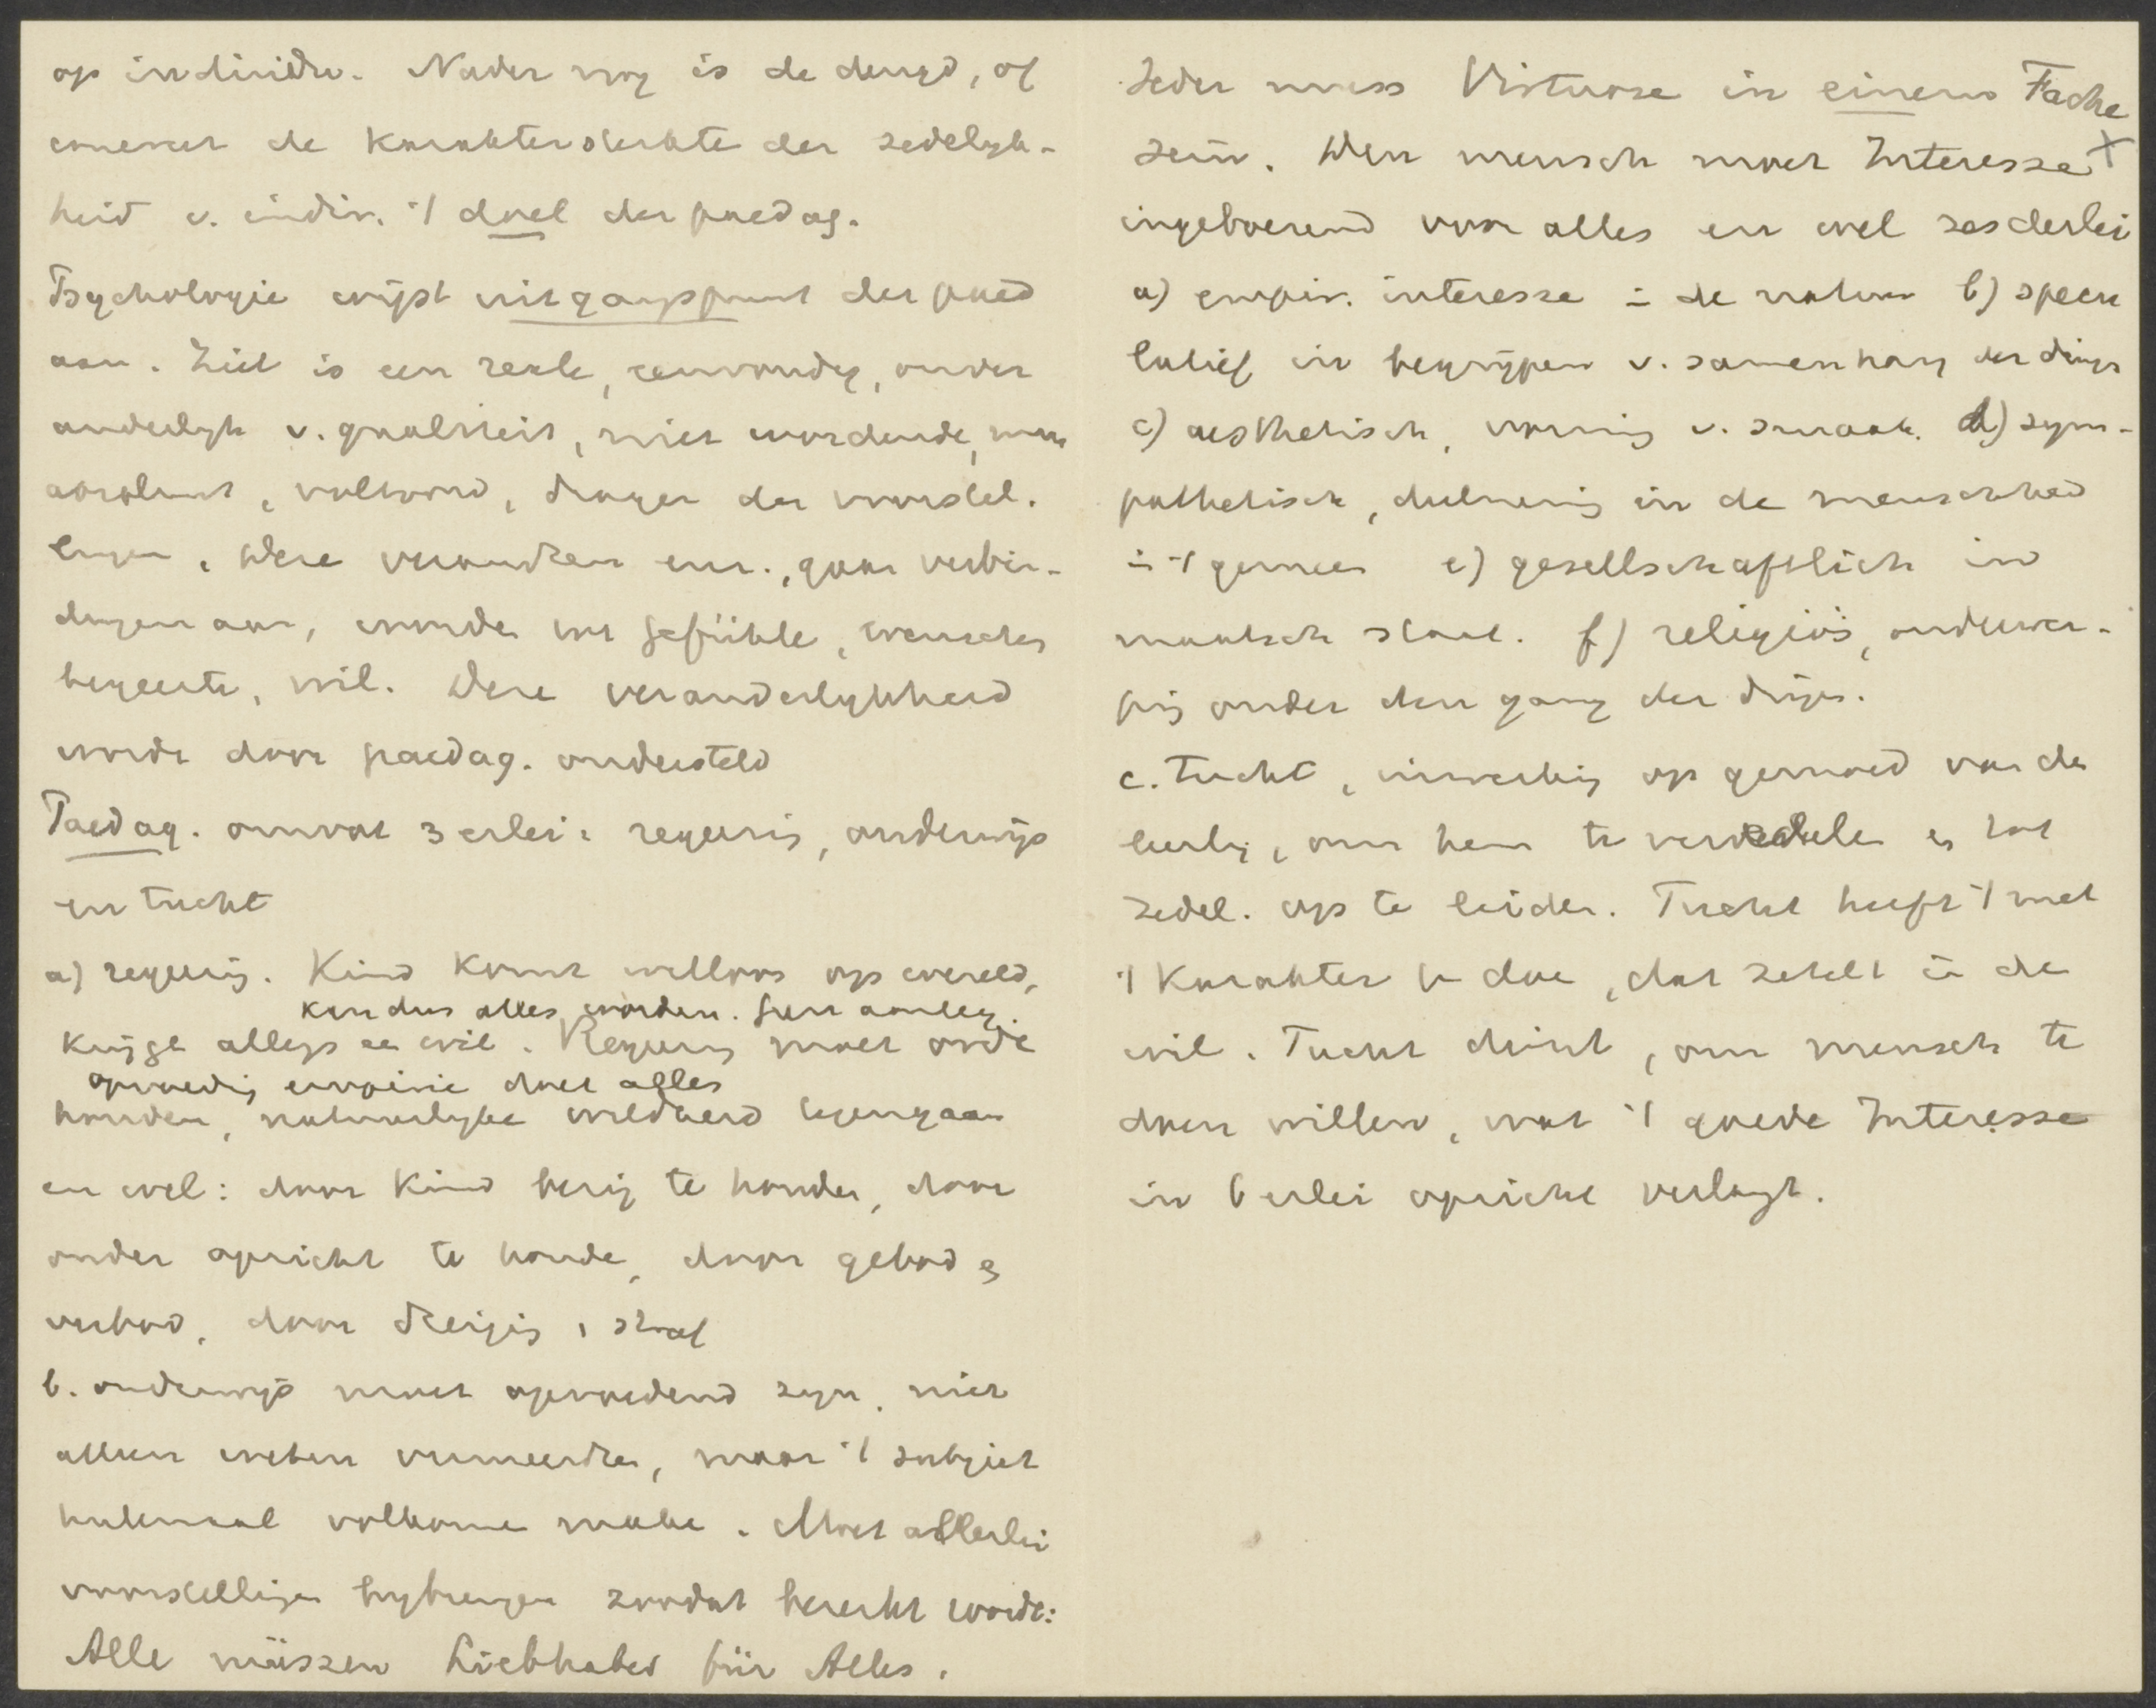 op individu. Nader nog is de deugd, of
comenet de karaktersterkte der zedelyk-
heid v. indiv. 't doel der paedag.
Psychologie wijst uitgangspunt der paed
aan. Ziel is een reale, eenvoudig, onver
anderlyk v. qualiteit, niet wordende, maar
absoluut, voltooid, drager der voorstel.
lingen. Deze veranderen enz., gaan verbin-
dingen aan, worden tot Gefühle, wenschen
begeerte, wil. Deze veranderlykheid
wordt door paedag. ondersteld
Paedag. omvat 3 erlei: regeering, onderwijs
en tucht
a) regeering. Kind komt willoos op wereld,
kan dus alles worden. Geen aanleg.
krijgt allegs een wil. Regeering moet orde
opvoeding empirie doet alles
houden, natuurlyke wildheid tegengaan
en wel: door kind bezig te houden, door
onder opzicht te houden, door gebod en
verbod, door dreiging, straf
b. onderwijs moet opvoedend zyn, niet
alleen weten vermeerdren, maar 't subject
helemaal volkomen maken. Moet allerlei
voorstellingen bybrengen zoodat bereikt wordt:
Alle müssen Liebhaber für Alles.
Jeder muss Virtuose in einem Fache
sein. Den mensch moet Interesse X
ingeboezemd voor alles en wel zesderlei
a) empir. interesse in de natuur b) specu
latief in begrijpen v. samenhang der dingen
c) aesthetisch, vorming v. smaak. d) sym-
pathetisch, deelneming in de menschheid
in 't gemeen e) gesellschaftlich in
maatsch staat. f) religiös, onderwer-
ping onder den gang der dingen.
c. Tucht, inwerking op gemoed van de
leerling, om hem te veredelen en tot
zedel. op te leiden. Tucht heeft 't met
't karakter te doen, dat zetelt in de
wil. Tucht dient, om mensch te
doen willen, wat 't goede Interesse
in 6 erlei opzicht verlangt.